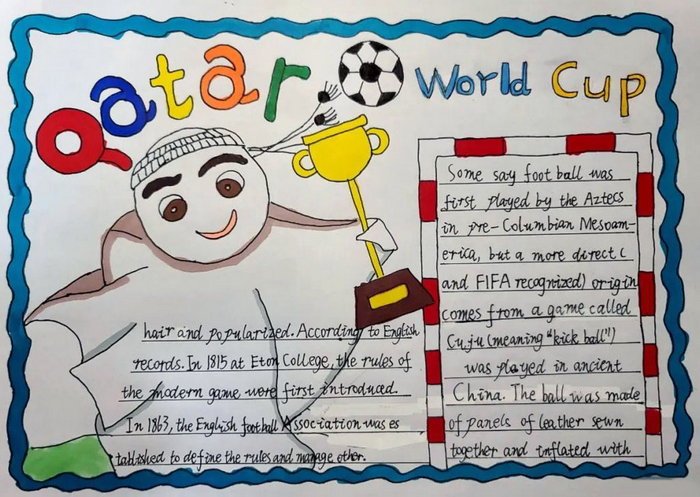 Qatar World Cup
Some say foot ball was
first played by the Aztecs
in pre-Columbian Mesoam-
erica, but a more direct (
and FIFA recognized) origin
comes from a game called
Cuju (meaning "kick ball")
was played in ancient
China. The ball was made
of panels of leather sewn
together and inflated with
hair and popularized. According to English
records. In 1815 at Eton College, the rules of
the modern game were first introduced.
In 1863, the English football Association was es
tablished to define the rules and manage other.